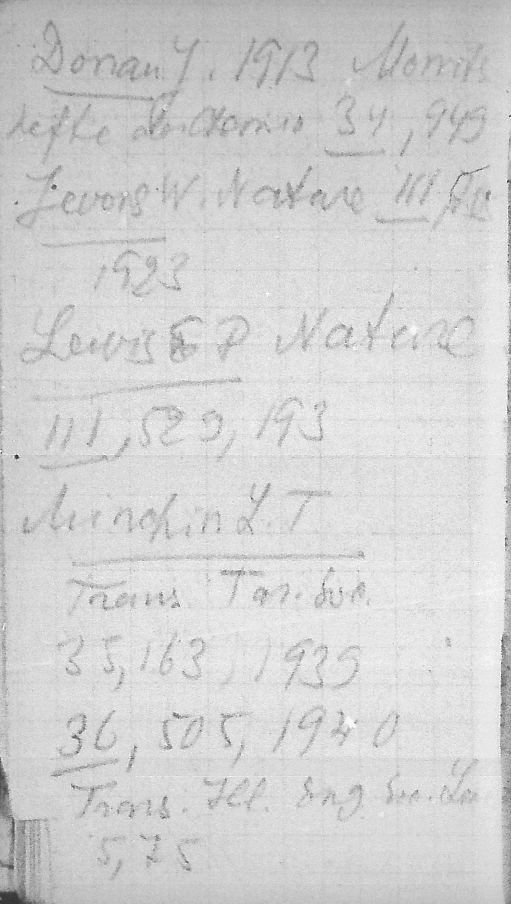 Donau J. 1913 Monats
hefte 34, 949
Jevons W. Nature 111
1923
Lewis E P Nature
111, 529, 193
Minchin L. T
Trans. Far. Soc.
35, 163, 1939
36, 505, 1940
Trans. Ill. Eng. Soc. Lon
5, 75